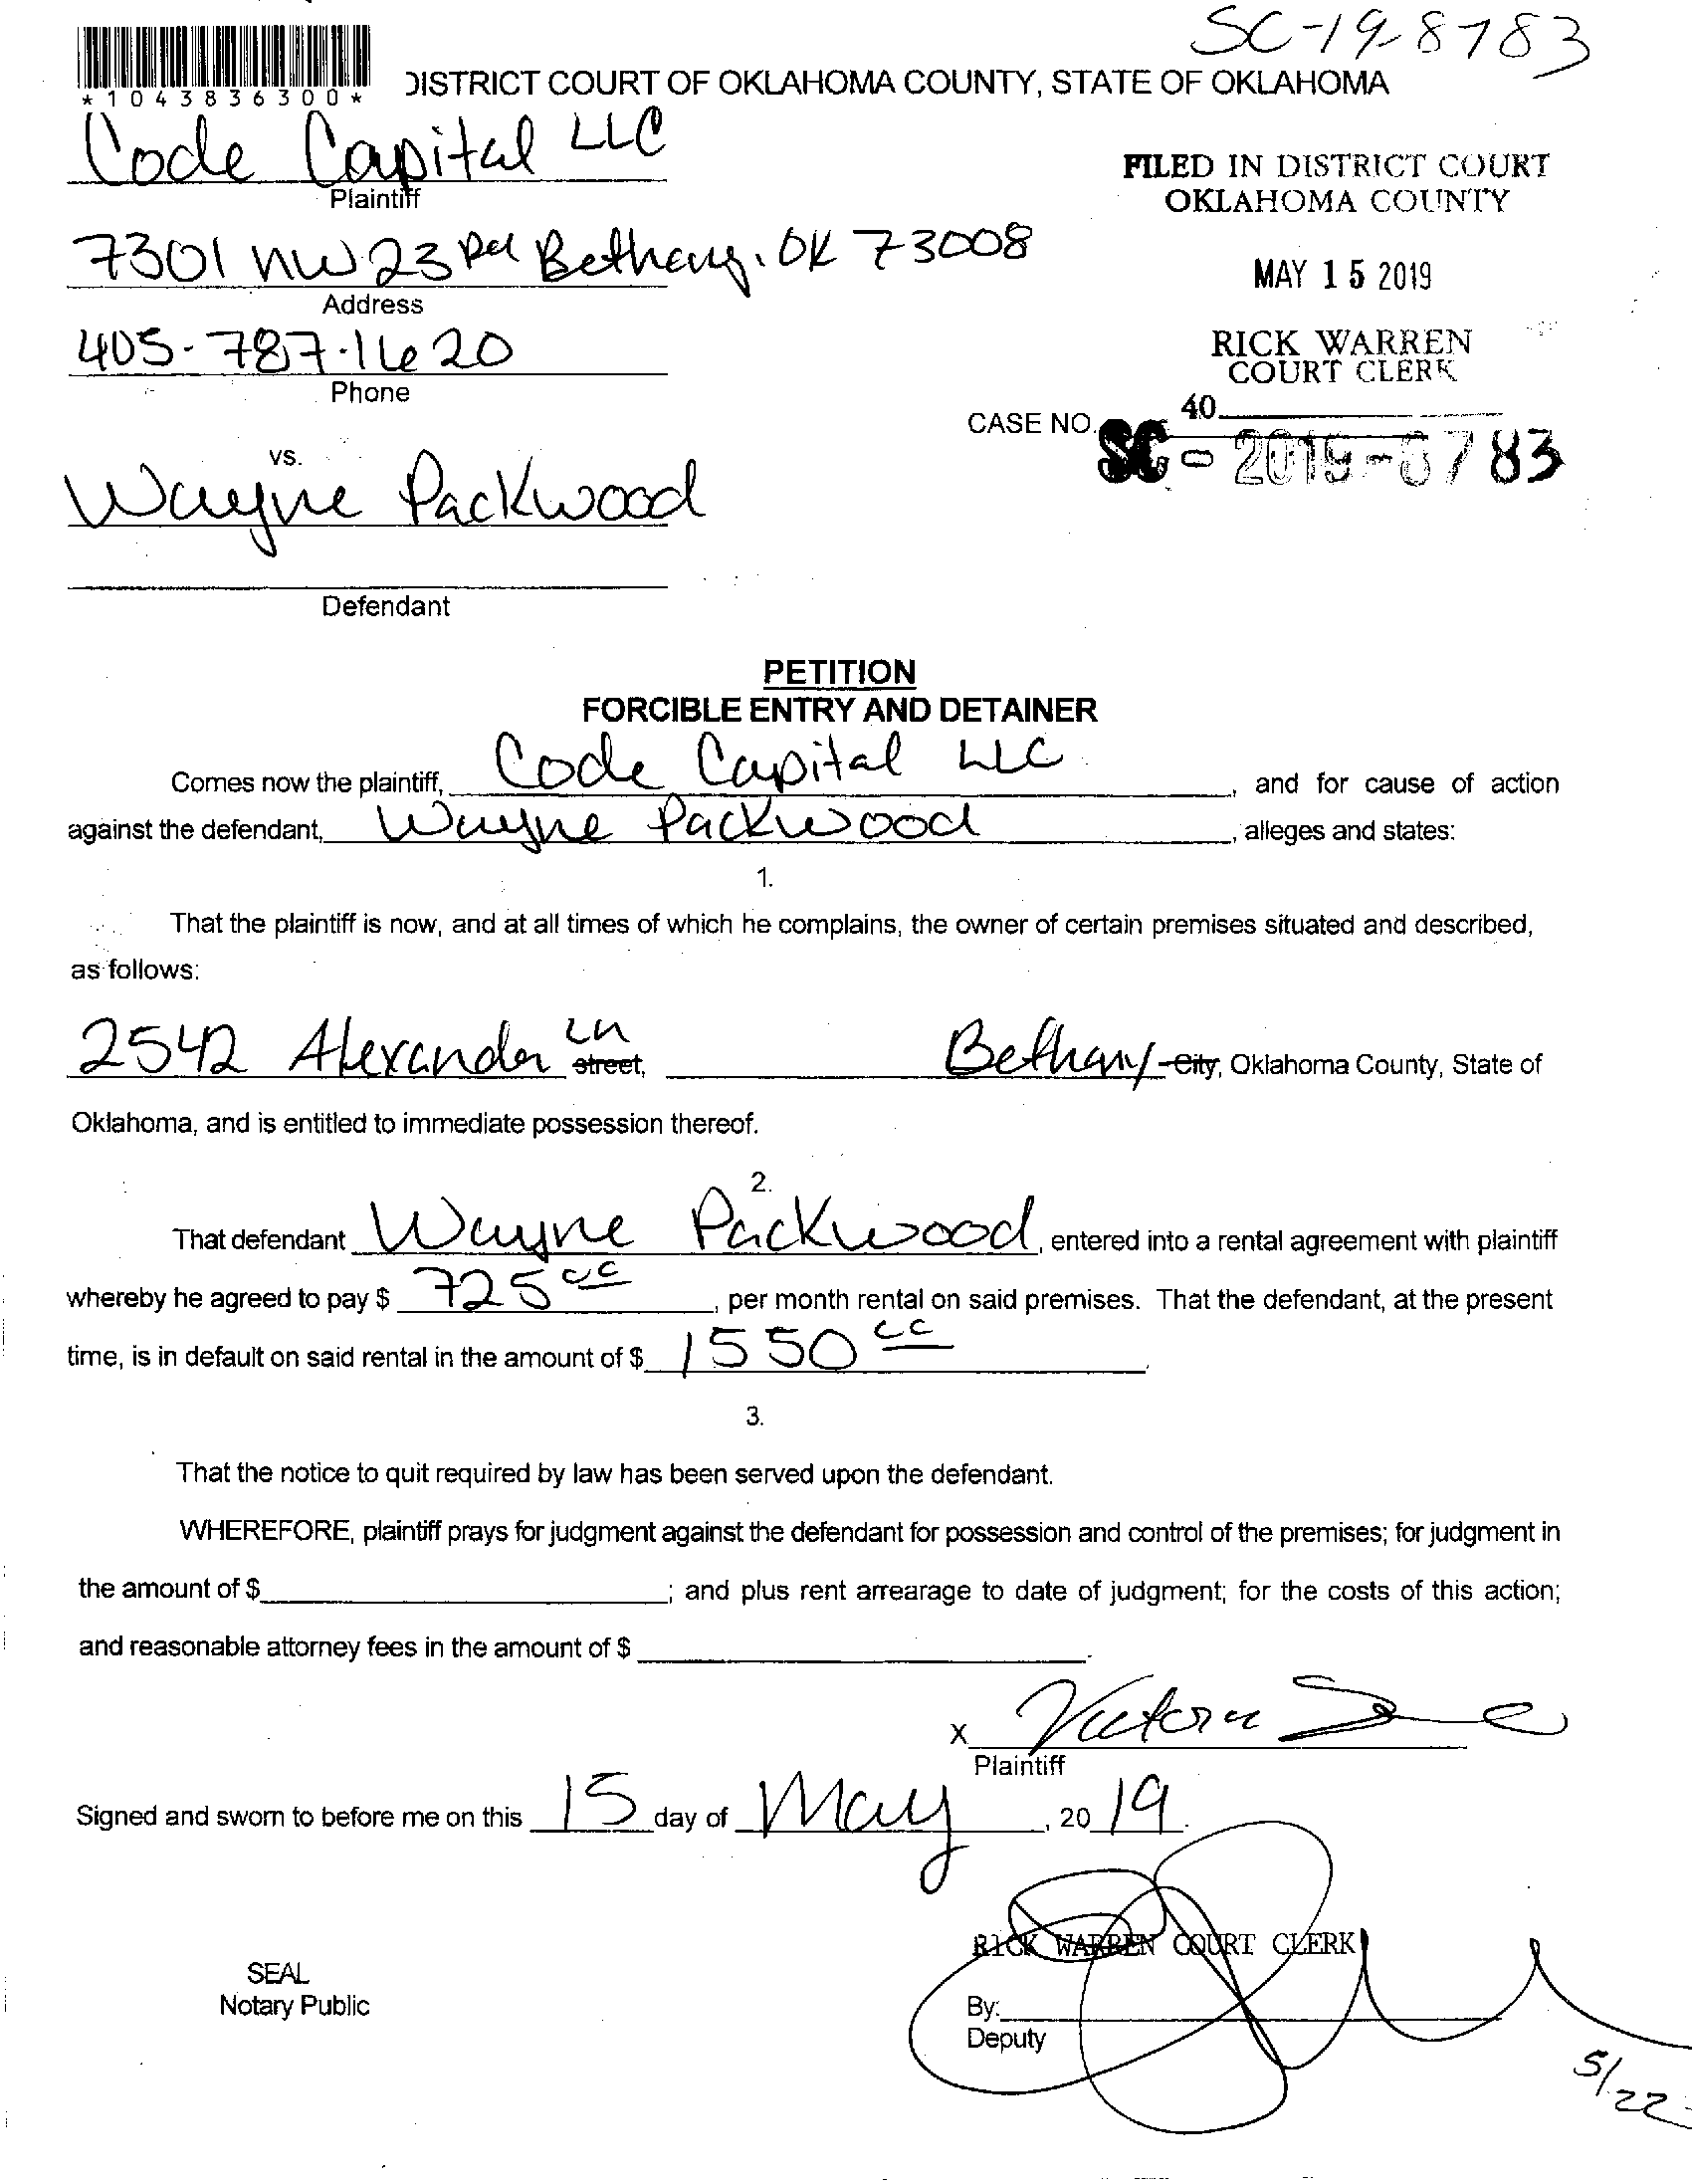 SC-19-8783
*1043836300*
DISTRICT COURT OF OKLAHOMA COUNTY, STATE OF OKLAHOMA
Code Capital LLC
Plaintiff
FILED IN DISTRICT COURT
OKLAHOMA COUNTY
7301 NW 23rd Bethany, OK 73008
Address
MAY 15 2019
405-787-1620
Phone
RICK WARREN
COURT CLERK
40
CASE NO.
SC - 2019-8783
vs.
Wayne Packwood
Defendant
PETITION
FORCIBLE ENTRY AND DETAINER
Comes now the plaintiff, Code Capital LLC, and for cause of action
against the defendant, Wayne Packwood, alleges and states:
1.
That the plaintiff is now, and at all times of which he complains, the owner of certain premises situated and described,
as follows:
2542 Alexander Ln street, Bethany City, Oklahoma County, State of
Oklahoma, and is entitled to immediate possession thereof.
2.
That defendant Wayne Packwood, entered into a rental agreement with plaintiff
whereby he agreed to pay $ 725 00, per month rental on said premises. That the defendant, at the present
time, is in default on said rental in the amount of $ 1550 00.
3.
That the notice to quit required by law has been served upon the defendant.
WHEREFORE, plaintiff prays for judgment against the defendant for possession and control of the premises; for judgment in
the amount of $ ; and plus rent arrearage to date of judgment; for the costs of this action;
and reasonable attorney fees in the amount of $ .
X Victoria
Plaintiff
Signed and sworn to before me on this 15 day of May, 2019.
RICK WARREN COURT CLERK
SEAL
Notary Public
By:
Deputy
5/22